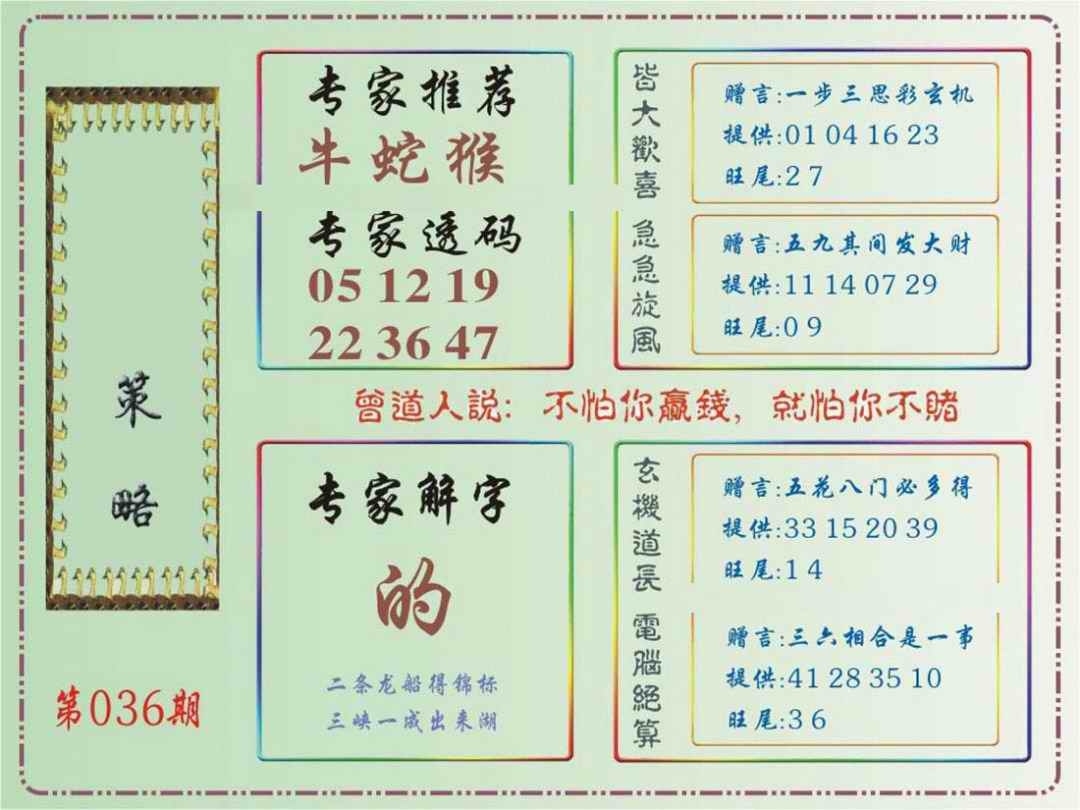 策
略
第036期
专家推荐
牛蛇猴
专家透码
05 12 19
22 36 47
皆大歡喜
赠言:一步三思彩玄机
提供:01 04 16 23
旺尾:2 7
急急旋風
赠言:五九其间发大财
提供:11 14 07 29
旺尾:0 9
曾道人説: 不怕你贏錢, 就怕你不賭
专家解字
的
二条龙船得锦标
三峡一成出来湖
玄機道長
赠言:五花八门必多得
提供:33 15 20 39
旺尾:1 4
電腦絕算
赠言:三六相合是一事
提供:41 28 35 10
旺尾:3 6